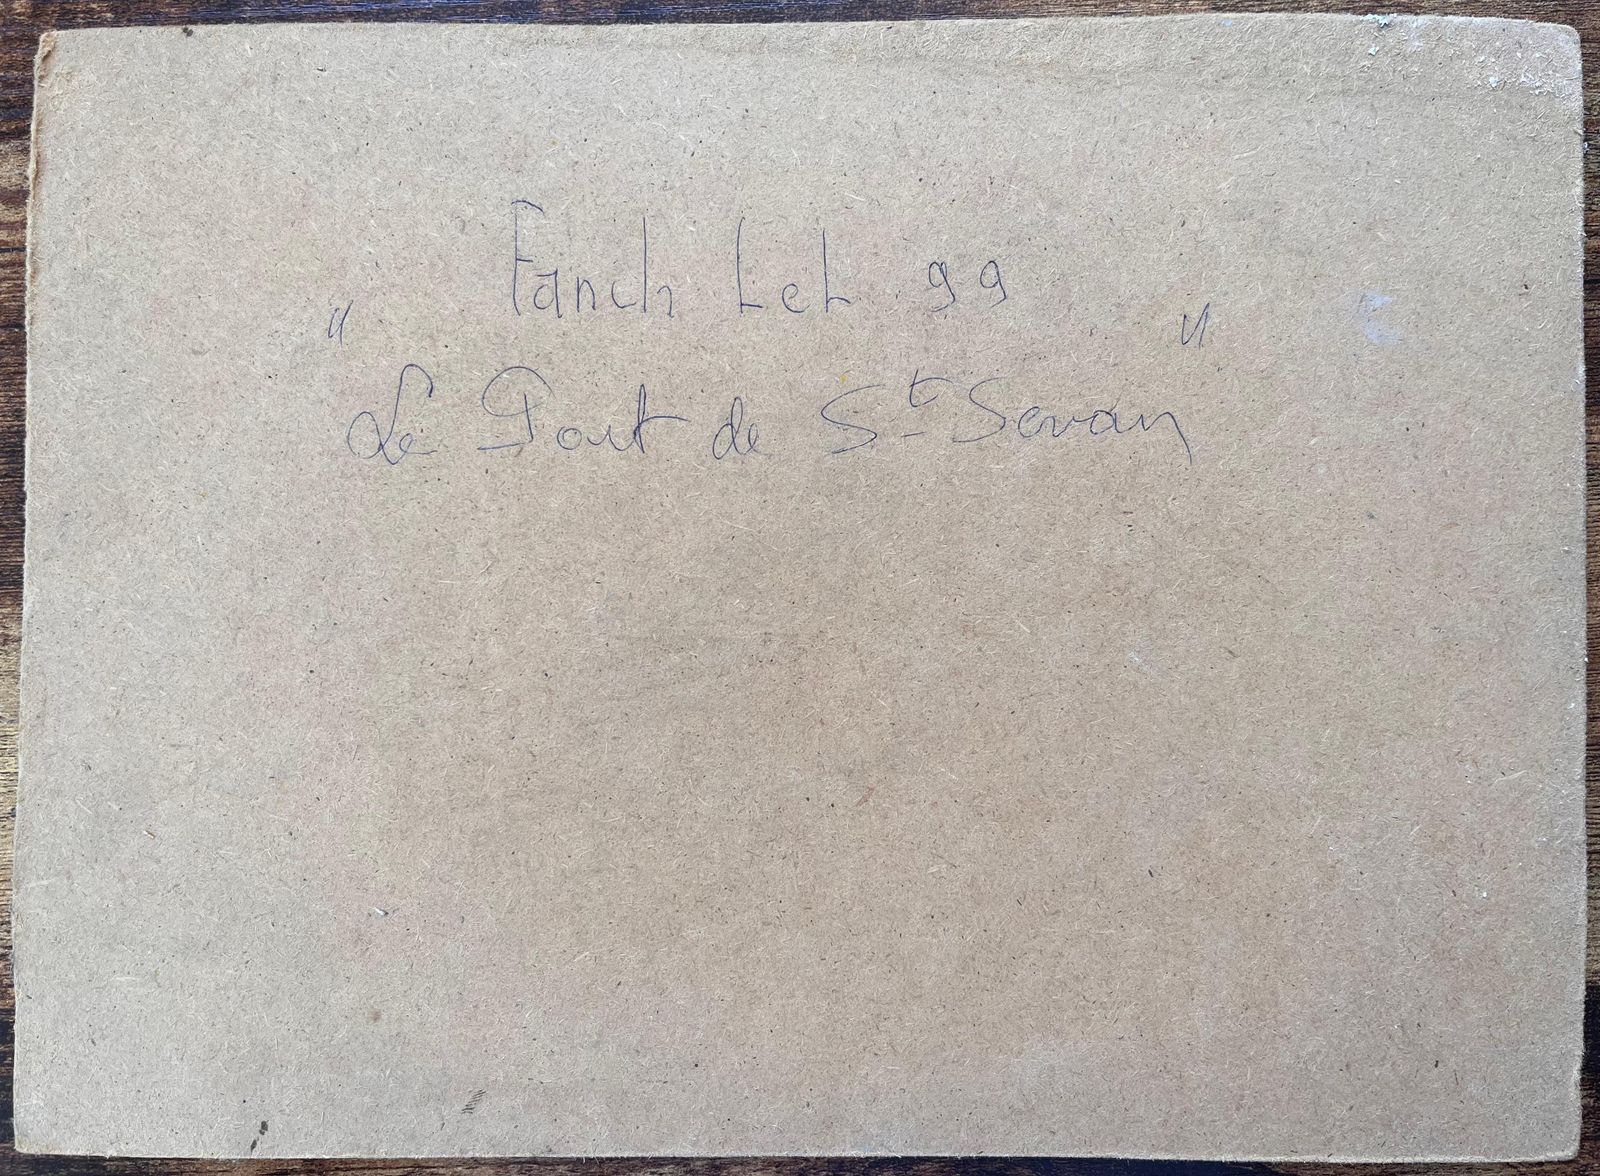 Fanch Lel 99
" "
Le Port de St Servan